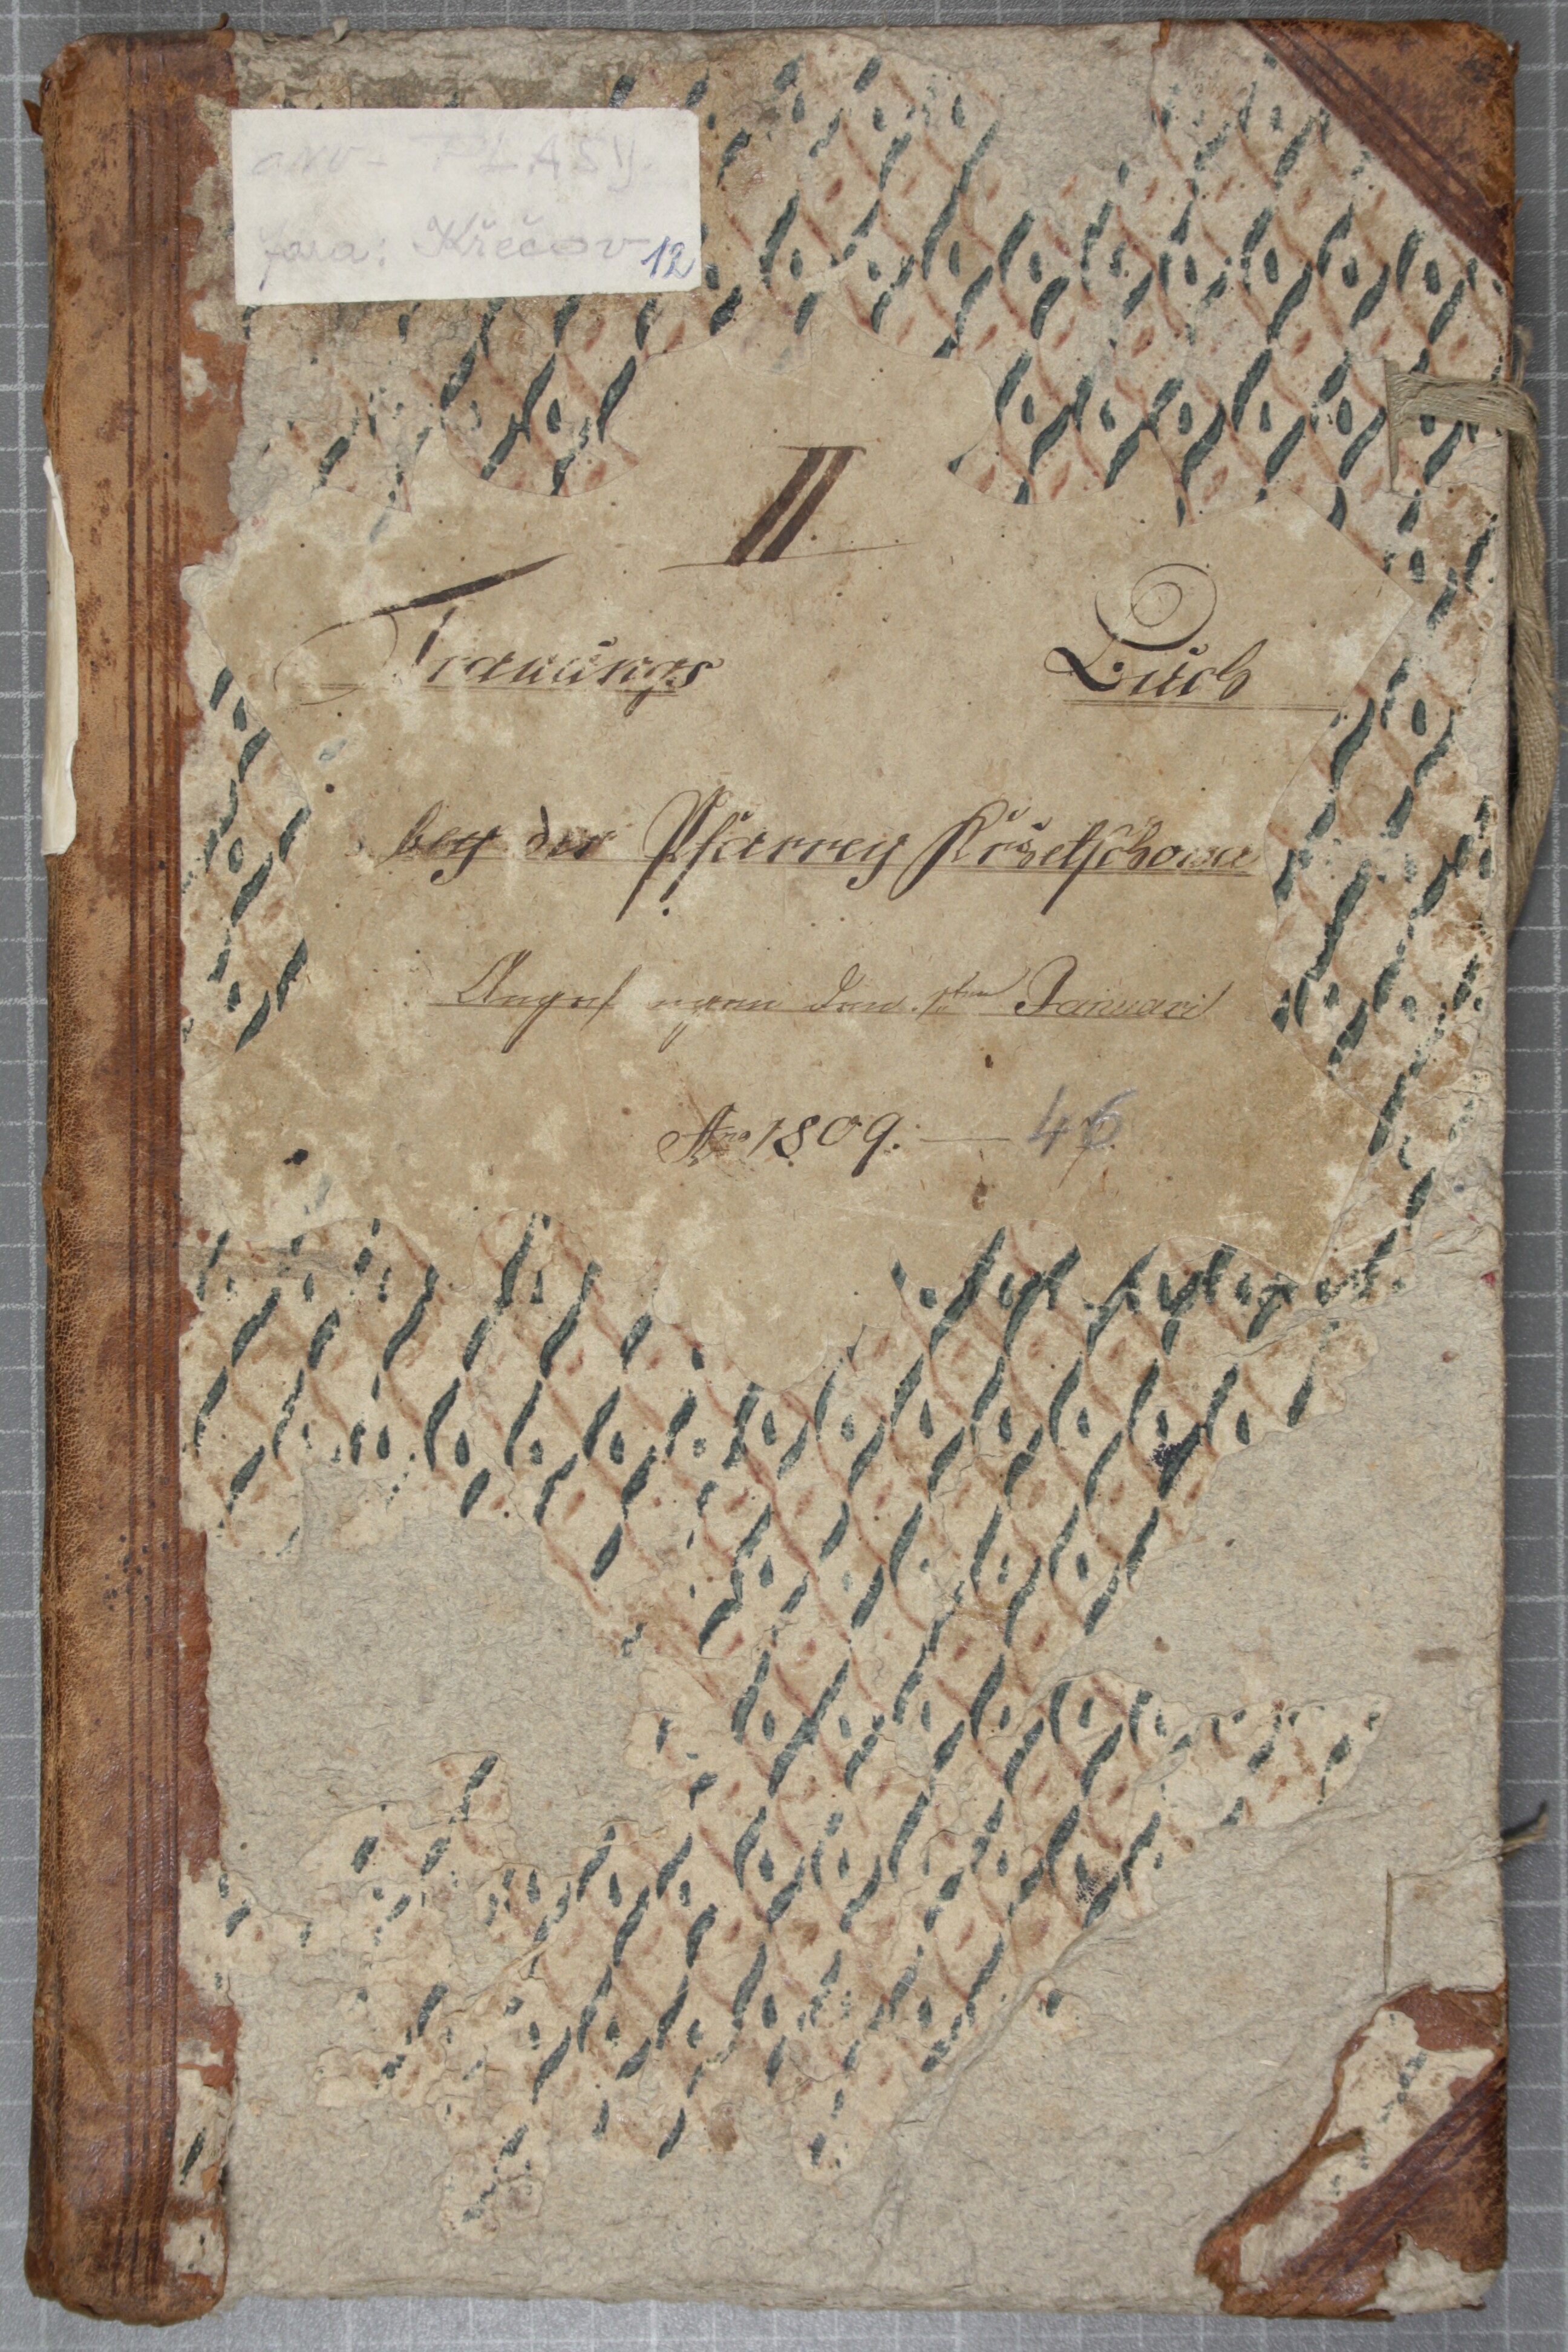 ONV - PLASY.
fara: Křečov 12
II
Trauungs Buch
bey der Pfarrey Kržetschowa
Angefangen den 1ten Januari
Ao 1809. — 46